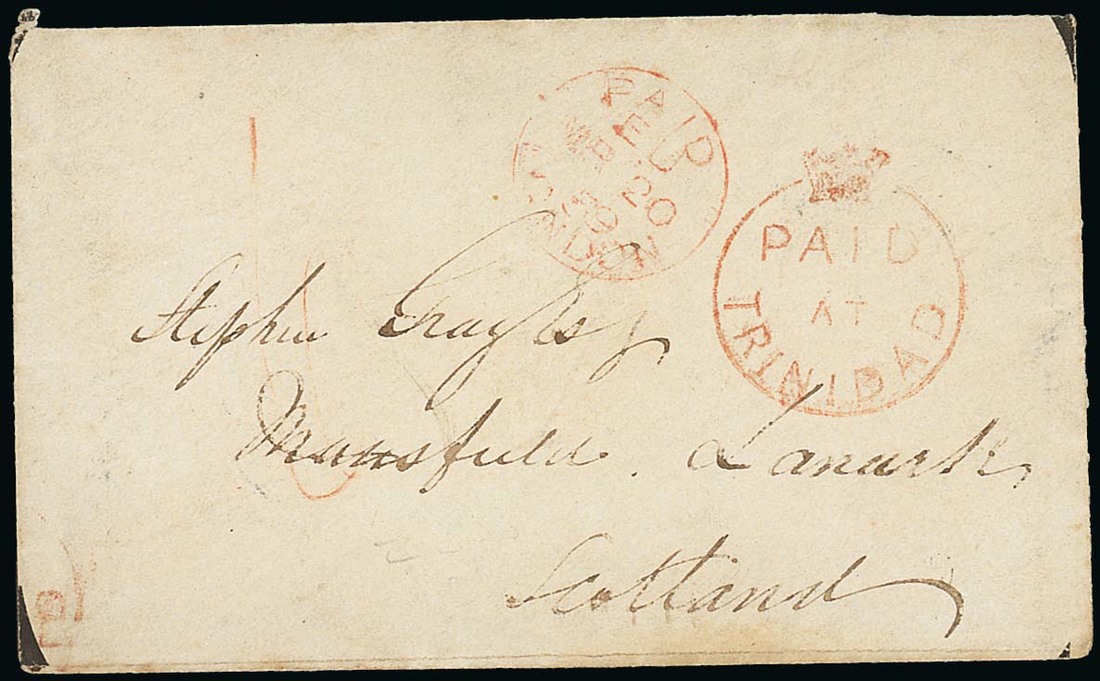 PAID
E
MR 20
LONDON
PAID
AT
TRINIDAD
Stephen Gray Esqr
Mansfield. Lanark,
Scotland